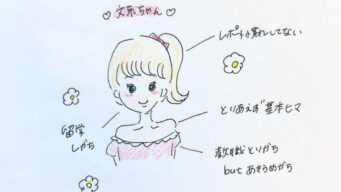 文系ちゃん
レポートか終わしてない
とりあえず基本ヒマ
留学
しがち
教職とりがち
but あきらめがち